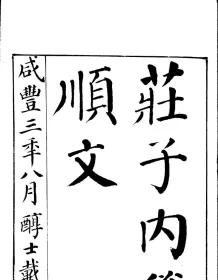 莊子内
順文
咸豐三秊八月醇士戴